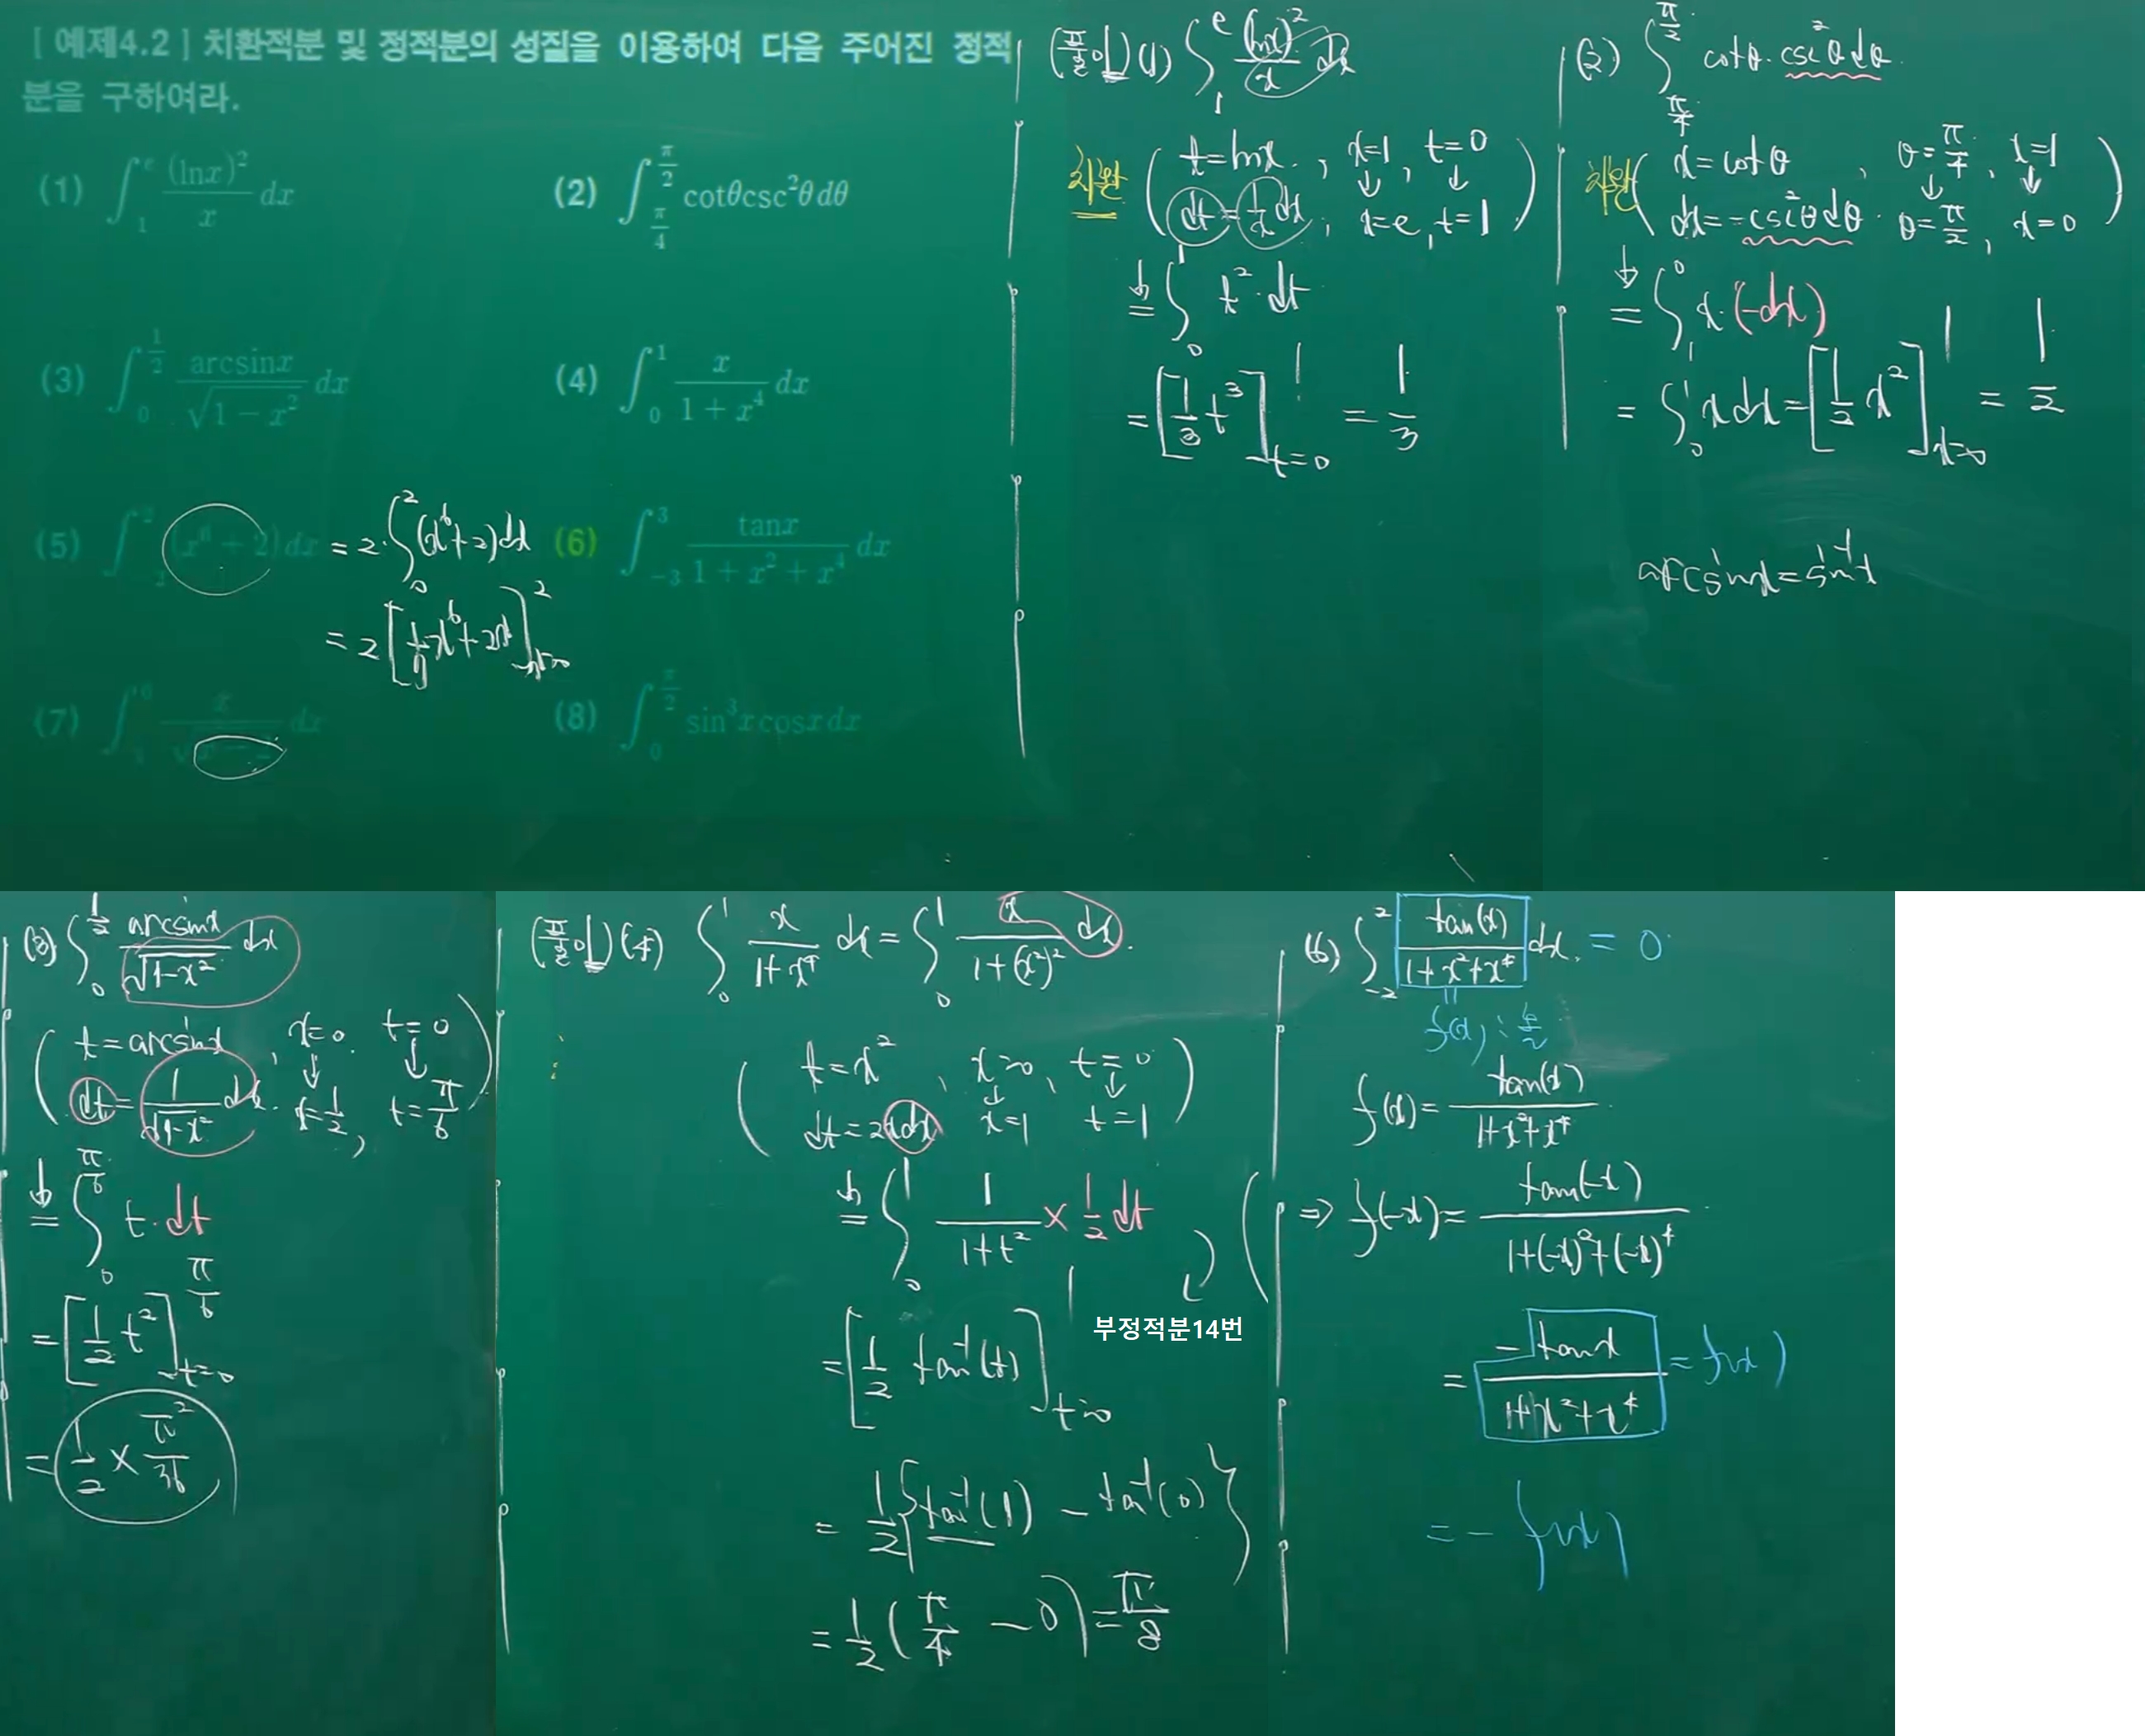 [ 예제4.2 ] 치환적분 및 정적분의 성질을 이용하여 다음 주어진 정적
분을 구하여라.
(1) ∫_1^e (lnx)²/x dx
(2) ∫_{π/4}^{π/2} cotθcsc²θdθ
(3) ∫_0^{1/2} arcsinx/√(1-x²) dx
(4) ∫_0^1 x/(1+x⁴) dx
(5) ∫ (x⁶+2)dx = 2·∫_0^2 (x⁶+2)dx
= 2[ x⁶+2x]_{x=0}^2
(6) ∫_{-3}^3 tanx/(1+x²+x⁴) dx
(7) ∫ dx
(8) ∫_0^{π/2} sin³xcosxdx
(풀이) (1) ∫_1^e (lnx)²/x dx
치환 ( t=lnx, x=1, t=0
↓ ↓
dt=1/x dx, x=e, t=1 )
= ∫_0^1 t²·dt
= [1/3 t³]_{t=0}^1 = 1/3
(2) ∫_{π/4}^{π/2} cotθ·csc²θdθ
치환 ( x=cotθ, θ=π/4, x=1
↓ ↓
dx=-csc²θdθ. θ=π/2, x=0 )
= ∫_1^0 x·(-dx)
= ∫_0^1 xdx = [1/2 x²]_{x=0}^1 = 1/2
arcsinx=sin⁻¹x
(3) ∫_0^{1/2} arcsinx/√(1-x²) dx
( t=arcsinx, x=0. t=0
↓ ↓
dt=1/√(1-x²) dx. x=1/2, t=π/6 )
= ∫_0^{π/6} t·dt
= [1/2 t²]_{t=0}^{π/6}
= 1/2 × π²/36
(풀이) (4) ∫_0^1 x/(1+x⁴) dx = ∫_0^1 x/(1+(x²)²) dx.
( t=x², x=0, t=0
↓ ↓
dt=2xdx x=1 t=1 )
= ∫_0^1 1/(1+t²) × 1/2 dt
부정적분14번
= [1/2 tan⁻¹(t)]_{t=0}^1
= 1/2{tan⁻¹(1) - tan⁻¹(0)}
= 1/2(π/4 - 0) = π/8
(6) ∫_{-2}^2 tan(x)/(1+x²+x⁴) dx. = 0
f(x) :
( f(x)= tan(x)/(1+x²+x⁴)
⇒ f(-x)= tan(-x)/(1+(-x)²+(-x)⁴)
= -tanx/(1+x²+x⁴) = f(x) )
= -f(x)